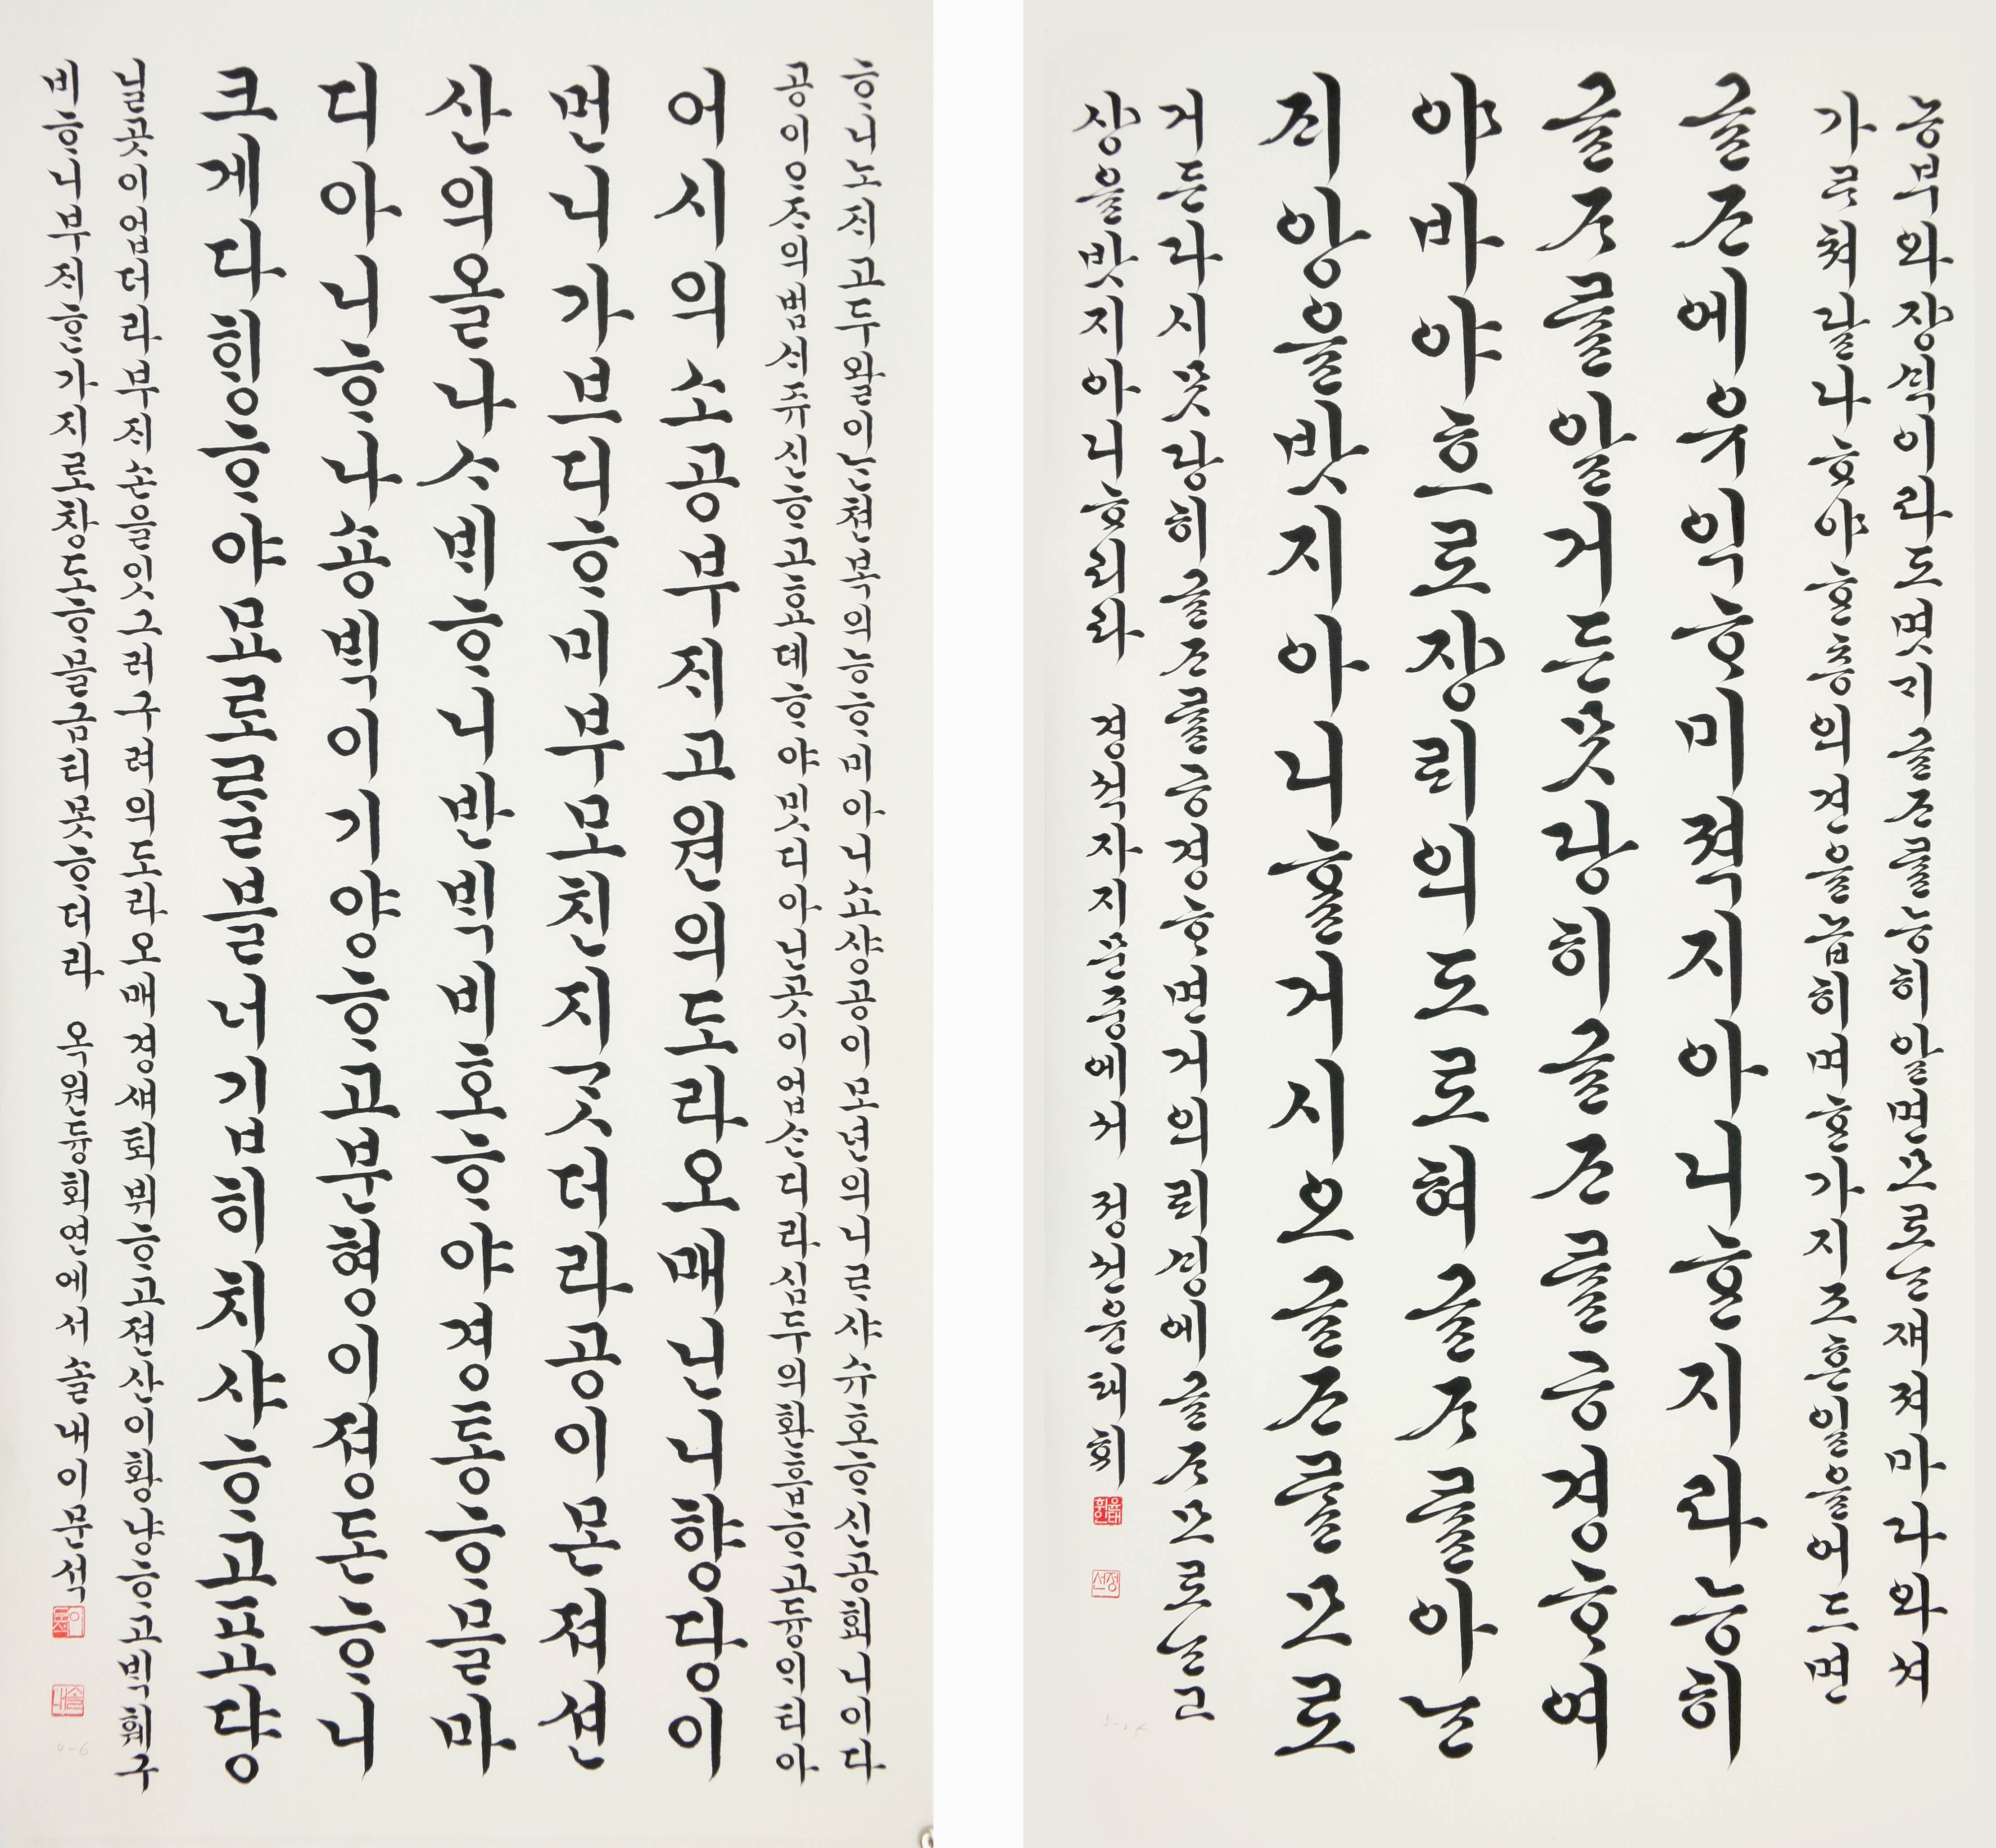 능부와장싁이라도몃지글ᄌᆞ를능히알면모로는재져마다와셔
가르쳐달나ᄒᆞ야ᄒᆞᆫ층의견을놉히며ᄒᆞᆫ가지조흔일을어드면
글ᄌᆞ에유익ᄒᆞ미젹지아니ᄒᆞᆫ지라능히
글ᄌᆞ를알거든ᄆᆞᆺ당히글ᄌᆞ를공경ᄒᆞ여
야바야흐로장ᄅᆡ의도로혀글ᄌᆞ를아난
ᄌᆡ앙을밧지아니ᄒᆞᆯ거시오글ᄌᆞ를모로
거든다시ᄆᆞᆺ당히글ᄌᆞ를공경ᄒᆞ면거의ᄅᆡᄉᆡᆼ에글ᄌᆞ모로는고
상을밧지아니ᄒᆞ리라 경석자지문중에서 정선윤태희
ᄒᆞ니노ᄌᆡ고두왈이ᄂᆞᆫ쳔복의능ᄒᆞ미아니쇼샹공이모년의니ᄅᆞ샤슈호ᄒᆞ신공회니이다
공이우ᄌᆞ의범ᄉᆡ쥬신ᄒᆞ고효뎨ᄒᆞ야밋디아닌곳이업ᄉᆞᆫ디라심두의환흡ᄒᆞ고듕의디아
어시의소공부ᄌᆡ고원의도라오매닌니향당이
먼니가브ᄃᆡᄒᆞ미부모친지ᄀᆞᆺ더라공이몬져션
산의올나ᄉᆞᄇᆡᄒᆞ니반ᄇᆡᆨ비호ᄒᆞ야경동ᄒᆞ믈마
디아니ᄒᆞ나숑ᄇᆡᆨ이기양ᄒᆞ고분형이졍돈ᄒᆞ니
크게다ᄒᆡᆼᄒᆞ야묘도ᄅᆞᆯ블너깁히치샤ᄒᆞ고표당
님곳이업더라부ᄌᆡ손을잇그러구려의도라오매경ᄉᆡ퇴뷔ᄒᆞ고젼산이황냥ᄒᆞ고ᄇᆡᆨ훼구
비ᄒᆞ니부ᄌᆡᄒᆞᆫ가지로창도ᄒᆞ믈금티못ᄒᆞ더라 옥원듕회연에서 솔내이문석